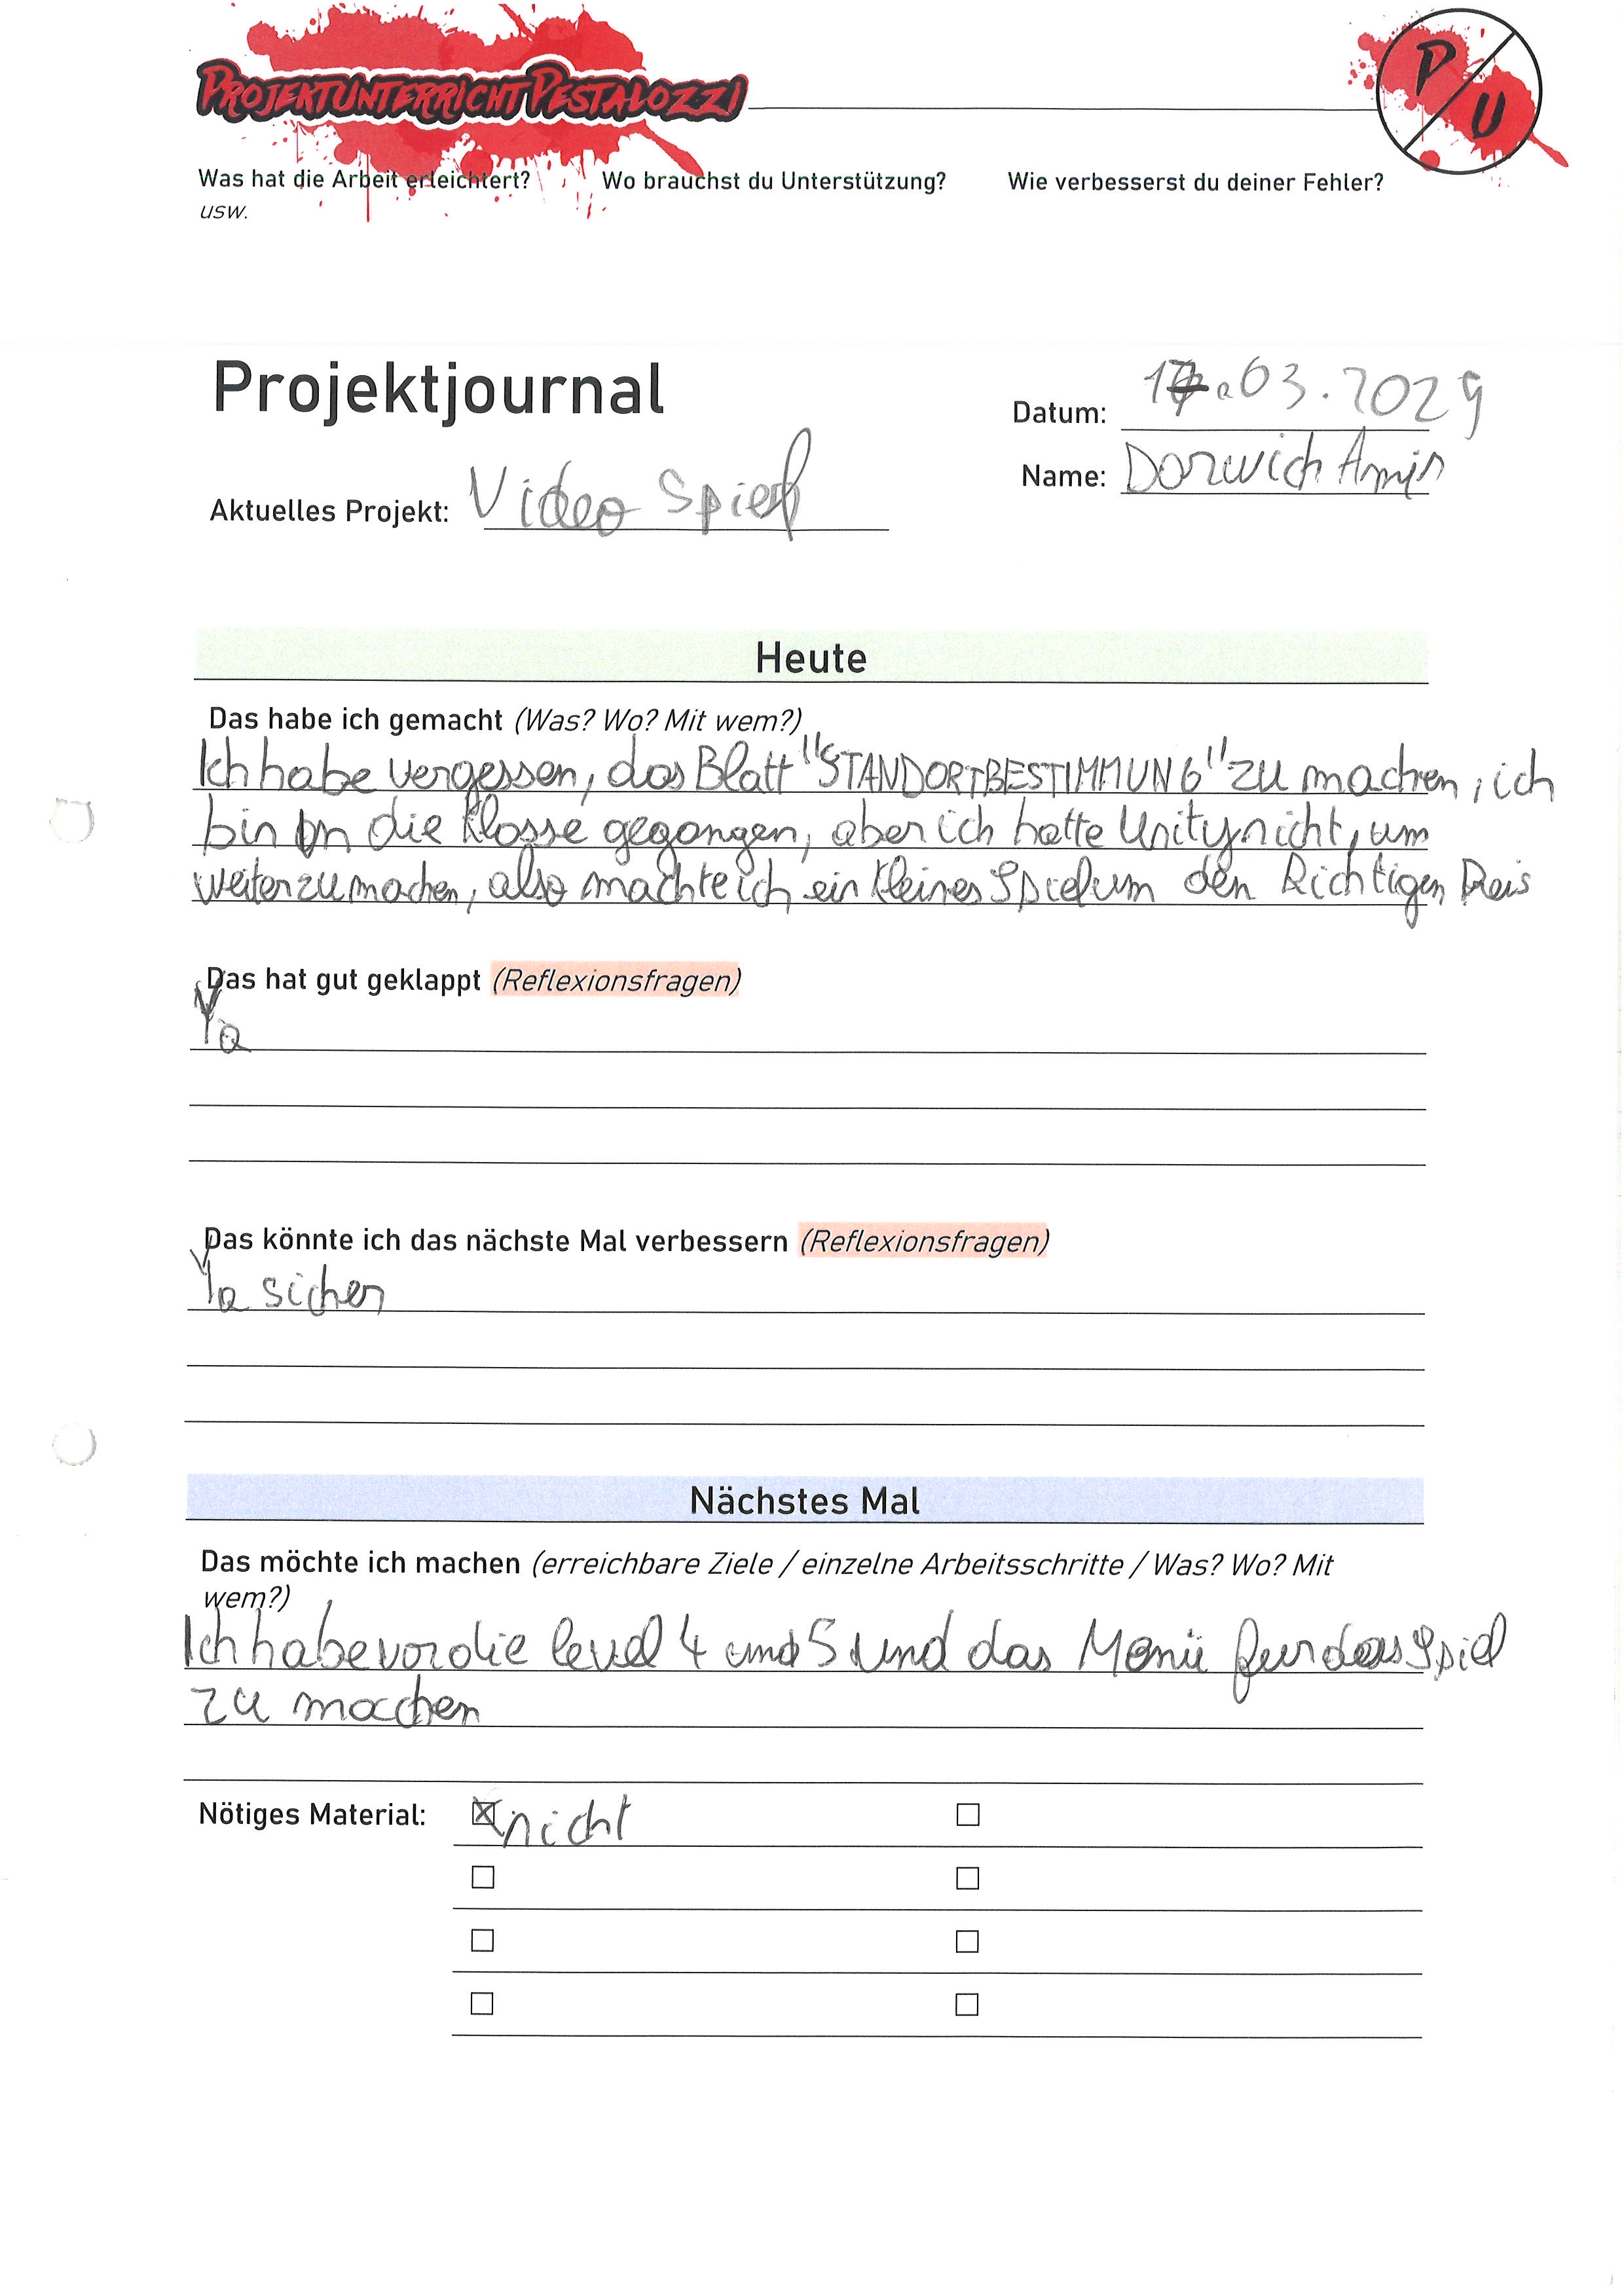 PROJEKTUNTERRICHT PESTALOZZI
P U
Was hat die Arbeit erleichtert? Wo brauchst du Unterstützung? Wie verbesserst du deiner Fehler?
usw.
Projektjournal
Datum: .03.2029
Name: Darwich Amin
Aktuelles Projekt: Video Spiel
Heute
Das habe ich gemacht (Was? Wo? Mit wem?)
Ich habe vergessen, das Blatt "STANDORTBESTIMMUNG" zu machen, ich
bin in die Klasse gegangen, aber ich hatte Unity nicht, um
weiterzumachen, also machte ich ein kleines Spiel um den Richtigen
Das hat gut geklappt (Reflexionsfragen)
Ya
Das könnte ich das nächste Mal verbessern (Reflexionsfragen)
Ya sicher
Nächstes Mal
Das möchte ich machen (erreichbare Ziele / einzelne Arbeitsschritte / Was? Wo? Mit
wem?)
Ich habe vor die level 4 und 5 und das Menü fur das Spiel
zu machen
Nötiges Material: nicht